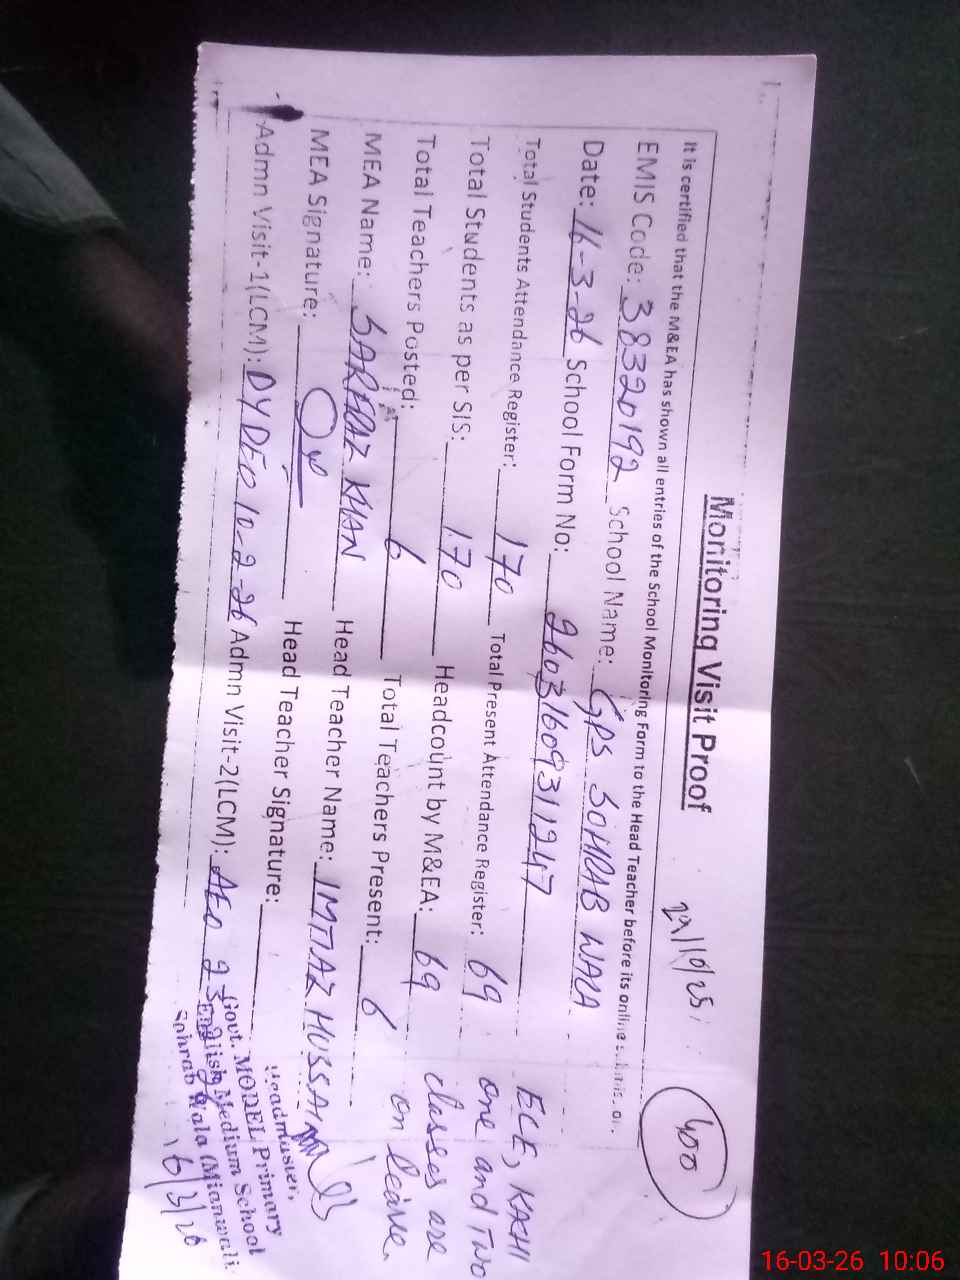 Monitoring Visit Proof
29/10/25
400
It is certified that the M&EA has shown all entries of the School Monitoring Form to the Head Teacher before its online
EMIS Code: 38320192 School Name: GPS SOHRAB WALA
Date: 16-3-26 School Form No: 260316093111247
Total Students Attendance Register: 170 Total Present Attendance Register: 69
Total Students as per SIS: 170 Headcount by M&EA: 69
Total Teachers Posted: 6 Total Teachers Present: 6
ECE, KACHI
one and Two
classes are
on leave.
MEA Name: SARFRAZ KHAN Head Teacher Name: IMTIAZ HUSSAIN
MEA Signature: Head Teacher Signature:
Admn Visit-1(LCM): DYDEO 10-2-26 Admn Visit-2(LCM): AEO
Headmaster,
Govt. MODEL Primary
English Medium School
Sohrab Wala (Mianwali)
16/3/26
16-03-26 10:06